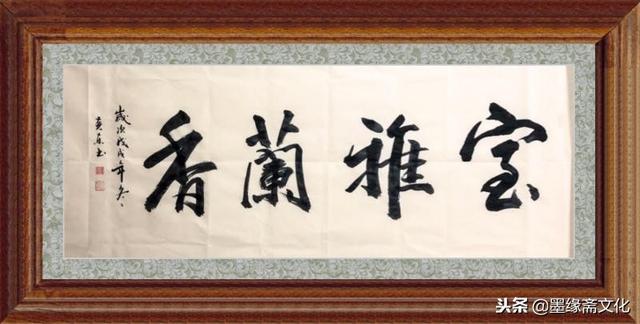 室雅蘭香
歲次戊戌年冬
頭条 @墨缘斋文化